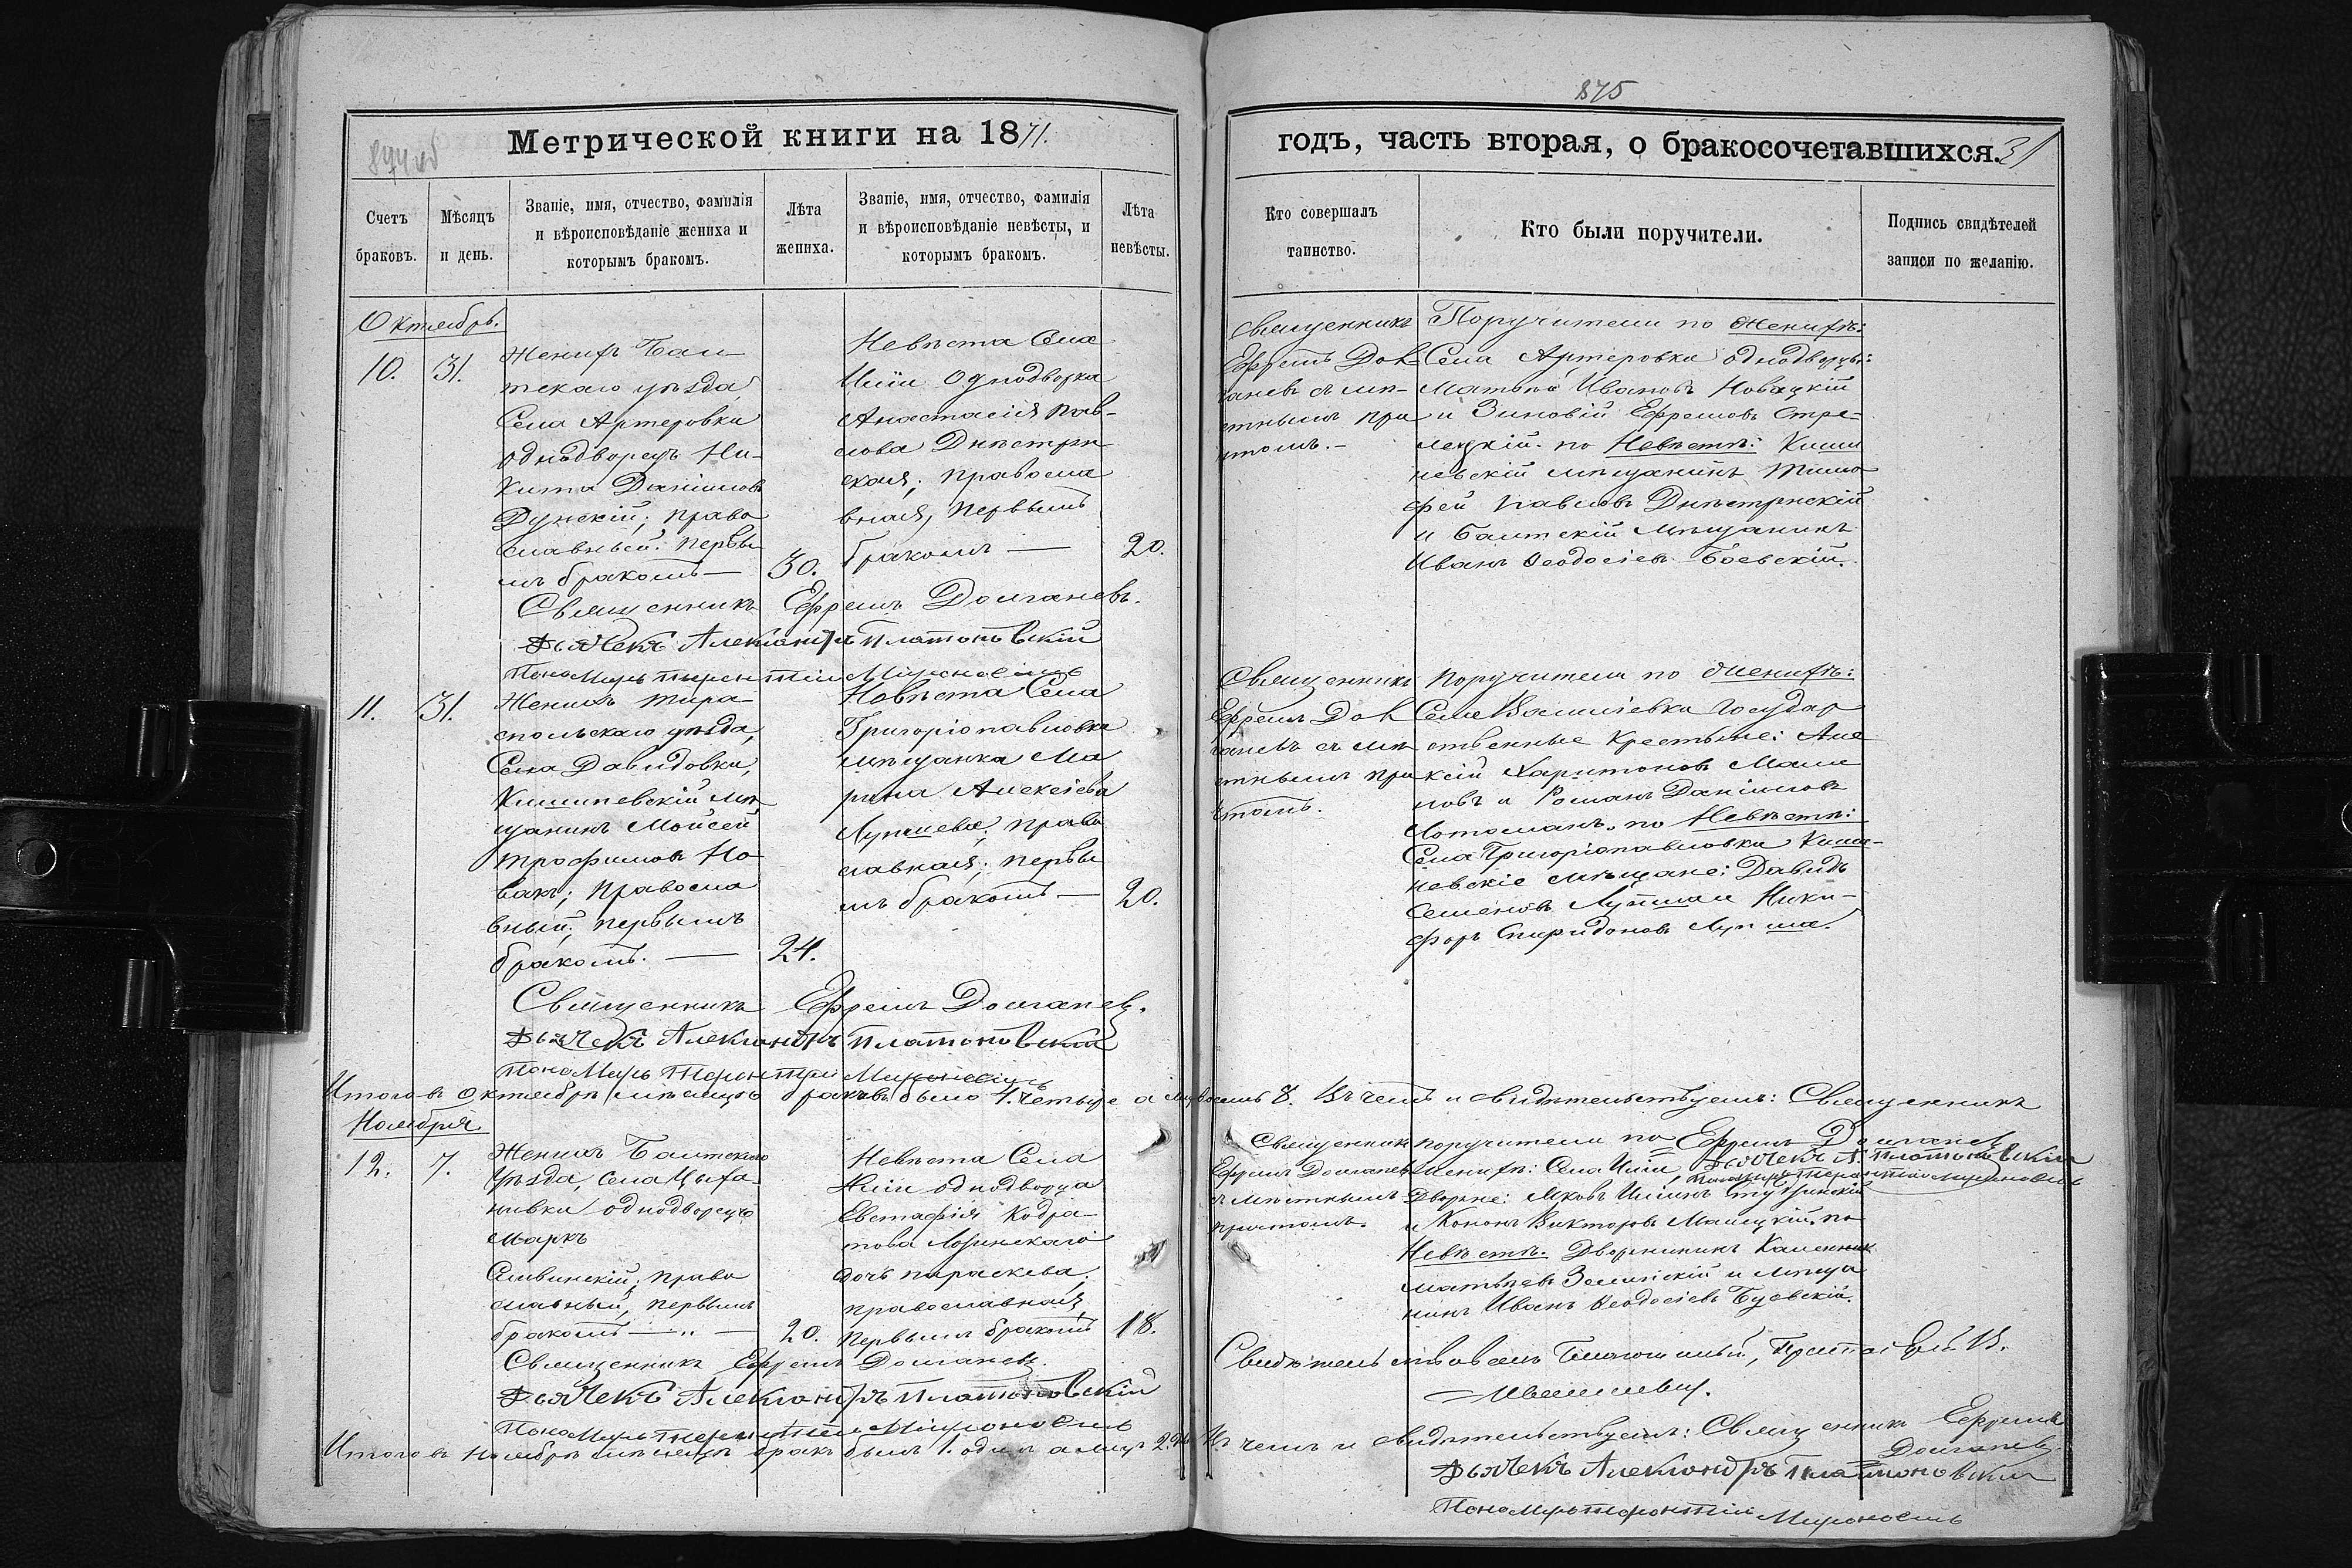 875
Метрической книги на 1871.
годъ, часть вторая, о бракосочетавшихся. 31
Счетъ браковъ.
Мѣсяцъ и день.
Званіе, имя, отчество, фамилія и вѣроисповѣданіе жениха и которымъ бракомъ.
Лѣта жениха.
Званіе, имя, отчество, фамилія и вѣроисповѣданіе невѣсты, и которымъ бракомъ.
Лѣта невѣсты.
Кто совершалъ таинство.
Кто были поручители.
Подпись свидѣтелей записи по желанію.
Октябрь.
10. 31.
Женихъ Бал-
тскаго уѣзда,
Села Артеровки
однодворецъ Ни-
кита Даніиловъ
православный: первы
мъ бракомъ —
30.
Невѣста Села
однодворка
Анастасія Пав-
лова Днѣстрян
ская; правосла
вная, первымъ
бракомъ —
20.
Священникъ
Ефремъ Дол
ганевъ съ мѣ-
стнымъ при
чтомъ. –
Поручители по Женихѣ:
Села Артеровки однодворцы:
Ивановъ Новацкій
и Зиновій Ефремовъ Стре-
лецкій. по Невѣстѣ: Киши
невскій мѣщанинъ Тимо
фей Павловъ Днѣстрянскій
и Балтскій Мѣщанинъ
Иванъ Ѳеодосіевъ Боевскій.
Священникъ Ефремъ Долганевъ.
Дьячекъ Александръ Платоновскій
Пономарь Терентій Мироновичь
11. 31.
Женихъ Тира-
спольскаго уѣзда,
Села Давидовки,
Кишиневскій мѣ-
щанинъ Мойсей
Трофимовъ Но
вакъ; правосла
вный; первымъ
бракомъ. —
24.
Невѣста Села
Григоріопавловки
мѣщанка Ма
рина Алексіева
Лупшева; право
славная; первы
мъ бракомъ —
20.
Священникъ
Ефремъ Дол
ганевъ съ мѣ
стнымъ при
чтомъ.
Поручители по Женихѣ:
Села Василіевки Государ
ственные крестьяне: Але
ксій Харитоновъ
и Романъ Даніиловъ
по Невѣстѣ:
Села Григоріопавловки Киши-
невскіе мѣщане: Давидъ
Семеновъ Лупша и Ники-
форъ Спиридоновъ Лупша.
Священникъ Ефремъ Долганевъ.
Дьячекъ Александръ Платоновскій
Пономарь Терентій Мироновичь
Итого въ Октябрѣ мѣсяцѣ браковъ было 4. четыре а лицъ восемь 8. Въ чемъ и свидѣтельствуемъ: Священникъ
Ефремъ Долганевъ
Дьячекъ А. Платоновскій
Пономарь Терентій Мироновичь
Ноября.
12. 7.
Женихъ Балтскаго
Уѣзда, села Цыха
нивки однодворецъ
Маркъ
Сливинскій; право
славный, первымъ
бракомъ — „ —
20.
Невѣста Села
однодворца
Евстафія Кодра-
това Лозинскаго
дочь параскева;
православная,
первымъ бракомъ
18.
Священникъ
Ефремъ Долганевъ
съ мѣстнымъ
причтомъ.
поручители по
Женихѣ: Села
Дворяне: Яковъ
и Кононъ Викторовъ по
Невѣстѣ. Дворянинъ
Матвѣевъ Зелинскій и мѣща
нинъ Иванъ Ѳеодосіевъ Буевскій.
Священникъ Ефремъ Долганевъ.
Дьячекъ Александръ Платоновскій
Пономарь Терентій Мироновичь
Свидѣтельствовалъ Благочинный, Протоіерей В.
Итого въ Ноябрѣ мѣсяцѣ бракъ былъ 1. одинъ а лицъ 2. Въ чемъ и свидѣтельствуемъ: Священникъ Ефремъ
Долганевъ.
Дьячекъ Александръ Платоновскій
Пономарь Терентій Мироновичь